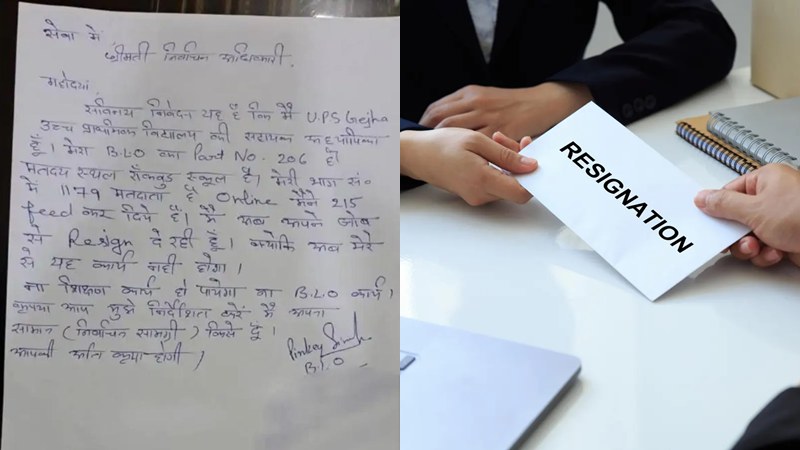 सेवा में
श्रीमती निर्वाचन अधिकारी,
महोदया
सविनय निवेदन यह है कि मैं U.P.S Gejha
उच्च प्राथमिक विद्यालय की सहायक अध्यापिका
हूँ। मेरा B.L.O का Part No. 206 है
मतदेय स्थल रॉकवुड स्कूल है। मेरी भाग सं०
में 1179 मतदाता है Online मैंने 215
feed कर दिये है। मैं अब अपने जोब
से Resign दे रही हूँ। क्योंकि अब मेरे
से यह कार्य नही होगा।
ना शिक्षण कार्य हो पायेगा ना B.L.O कार्य।
कृपया आप मुझे निर्देशित करें मैं अपना
सामान (निर्वाचन सामग्री) किसे दूँ।
आपकी अति कृपा होगी।
Pinkey Singh
B.L.O
RESIGNATION